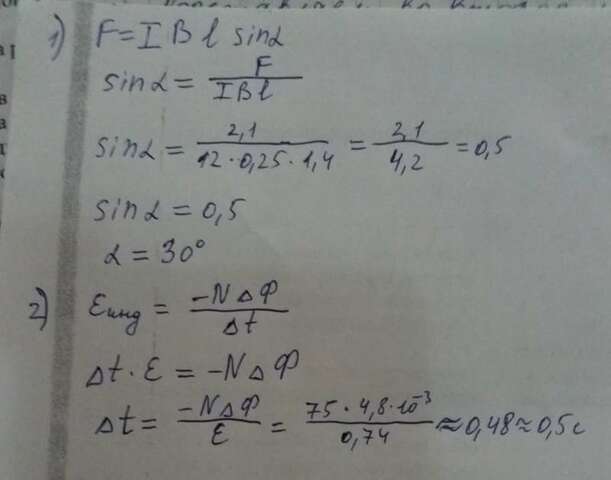 1) F = I B l sinα
sinα = F / IBl
sinα = 2,1 / 12·0,25·1,4 = 2,1 / 4,2 = 0,5
sinα = 0,5
α = 30°
2) εинд = -NΔФ / Δt
Δt·ε = -NΔФ
Δt = -NΔФ / ε = 75·4,8·10⁻³ / 0,74 ≈ 0,48 ≈ 0,5 с